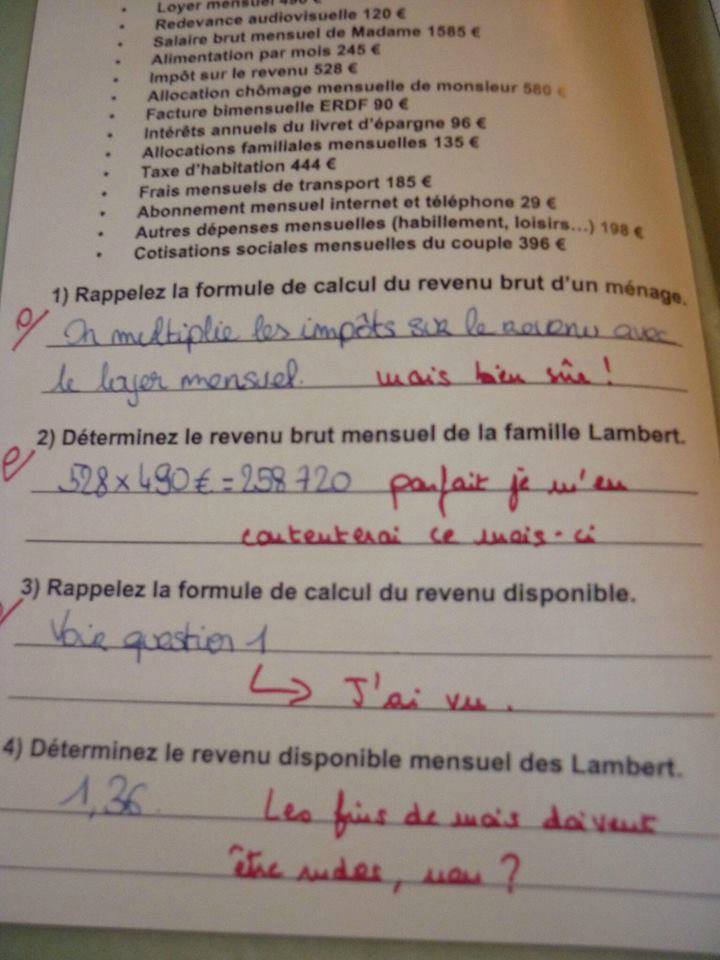 Loyer mensuel 490 €
Redevance audiovisuelle 120 €
Salaire brut mensuel de Madame 1585 €
Alimentation par mois 245 €
Impôt sur le revenu 528 €
Allocation chômage mensuelle de monsieur 580 €
Facture bimensuelle ERDF 90 €
Intérêts annuels du livret d'épargne 96 €
Allocations familiales mensuelles 135 €
Taxe d'habitation 444 €
Frais mensuels de transport 185 €
Abonnement mensuel internet et téléphone 29 €
Autres dépenses mensuelles (habillement, loisirs...) 198 €
Cotisations sociales mensuelles du couple 396 €
1) Rappelez la formule de calcul du revenu brut d'un ménage.
On multiplie les impôts sur le revenu avec
le loyer mensuel. mais bien sûr !
2) Déterminez le revenu brut mensuel de la famille Lambert.
528 x 490 € = 258 720 parfait je m'en
contenterai ce mois-ci
3) Rappelez la formule de calcul du revenu disponible.
Voir question 1
↳ J'ai vu.
4) Déterminez le revenu disponible mensuel des Lambert.
1,36 Les fins de mois doivent
être rudes, non ?